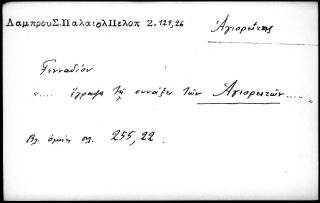 Λαμπρου Σ. Παλαιολ Πελοπ 2, 129,26
Ἁγιορείτης
Γενναδίου
".... ἔγραψα τῇ συνάξει τῶν Ἁγιορειτῶν...."
Βλ. ὁμοίως σλ. 255, 22.